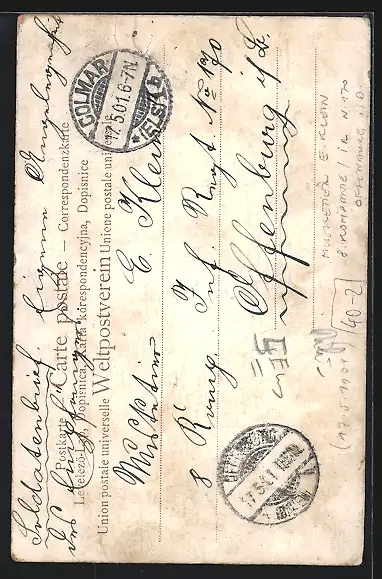 Soldatenbrief. Eigene Angelegenheit
des Empfängers
Postkarte — Carte postale — Correspondenzkarte
Levelező-Lap, Dopisnica, Karta korespondencyjna, Dopisnice
Union postale universelle Weltpostverein Unione postale universale
COLMAR
17.5.01.6-7N.
* (ELS.) b
Musketier E Klein
8 Komp. Inf. Regt. No 170
Offenburg i/B.
OFFENBURG
17.5.01
MUSKETIER E. KLEIN
8. KOMPANIE / IR N 170
OFFENBURG i.B.
(17.5.1901)
(40-2)